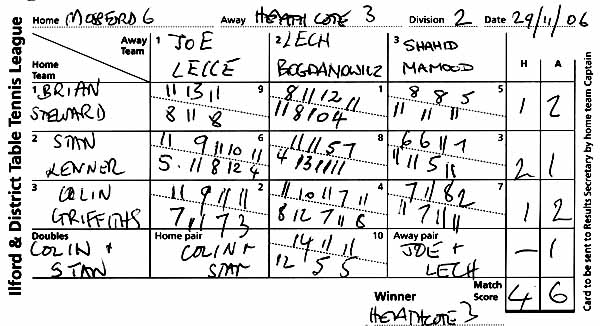 Ilford & District Table Tennis League
Home MOSSFORD 6 Away HEATHCOTE 3 Division 2 Date 29/11/06
Away Team 1 JOE 2 LECH 3 SHAHID H A
Home Team LEICE BOGDANOWICZ MAMOOD
1 BRIAN 11 13 11 9 8 11 12 11 1 8 8 5 5 1 2
STEWARD 8 11 8 11 8 10 4 11 11 11
2 STAN 11 9 11 10 11 6 11 11 5 7 8 6 6 11 7 3 2 1
LENNER 5 11 8 12 4 4 13 11 11 11 11 5 11
3 COLIN 11 9 11 11 2 11 10 11 7 11 4 7 11 8 2 7 1 2
GRIFFITHS 7 11 7 3 8 12 7 11 8 11 7 11 11
Doubles Home pair 14 11 11 10 Away pair
COLIN + COLIN + 12 5 5 JOE + - 1
STAN STAN LECH
Winner Match Score 4 6
HEATHCOTE 3
Card to be sent to Results Secretary by home team Captain